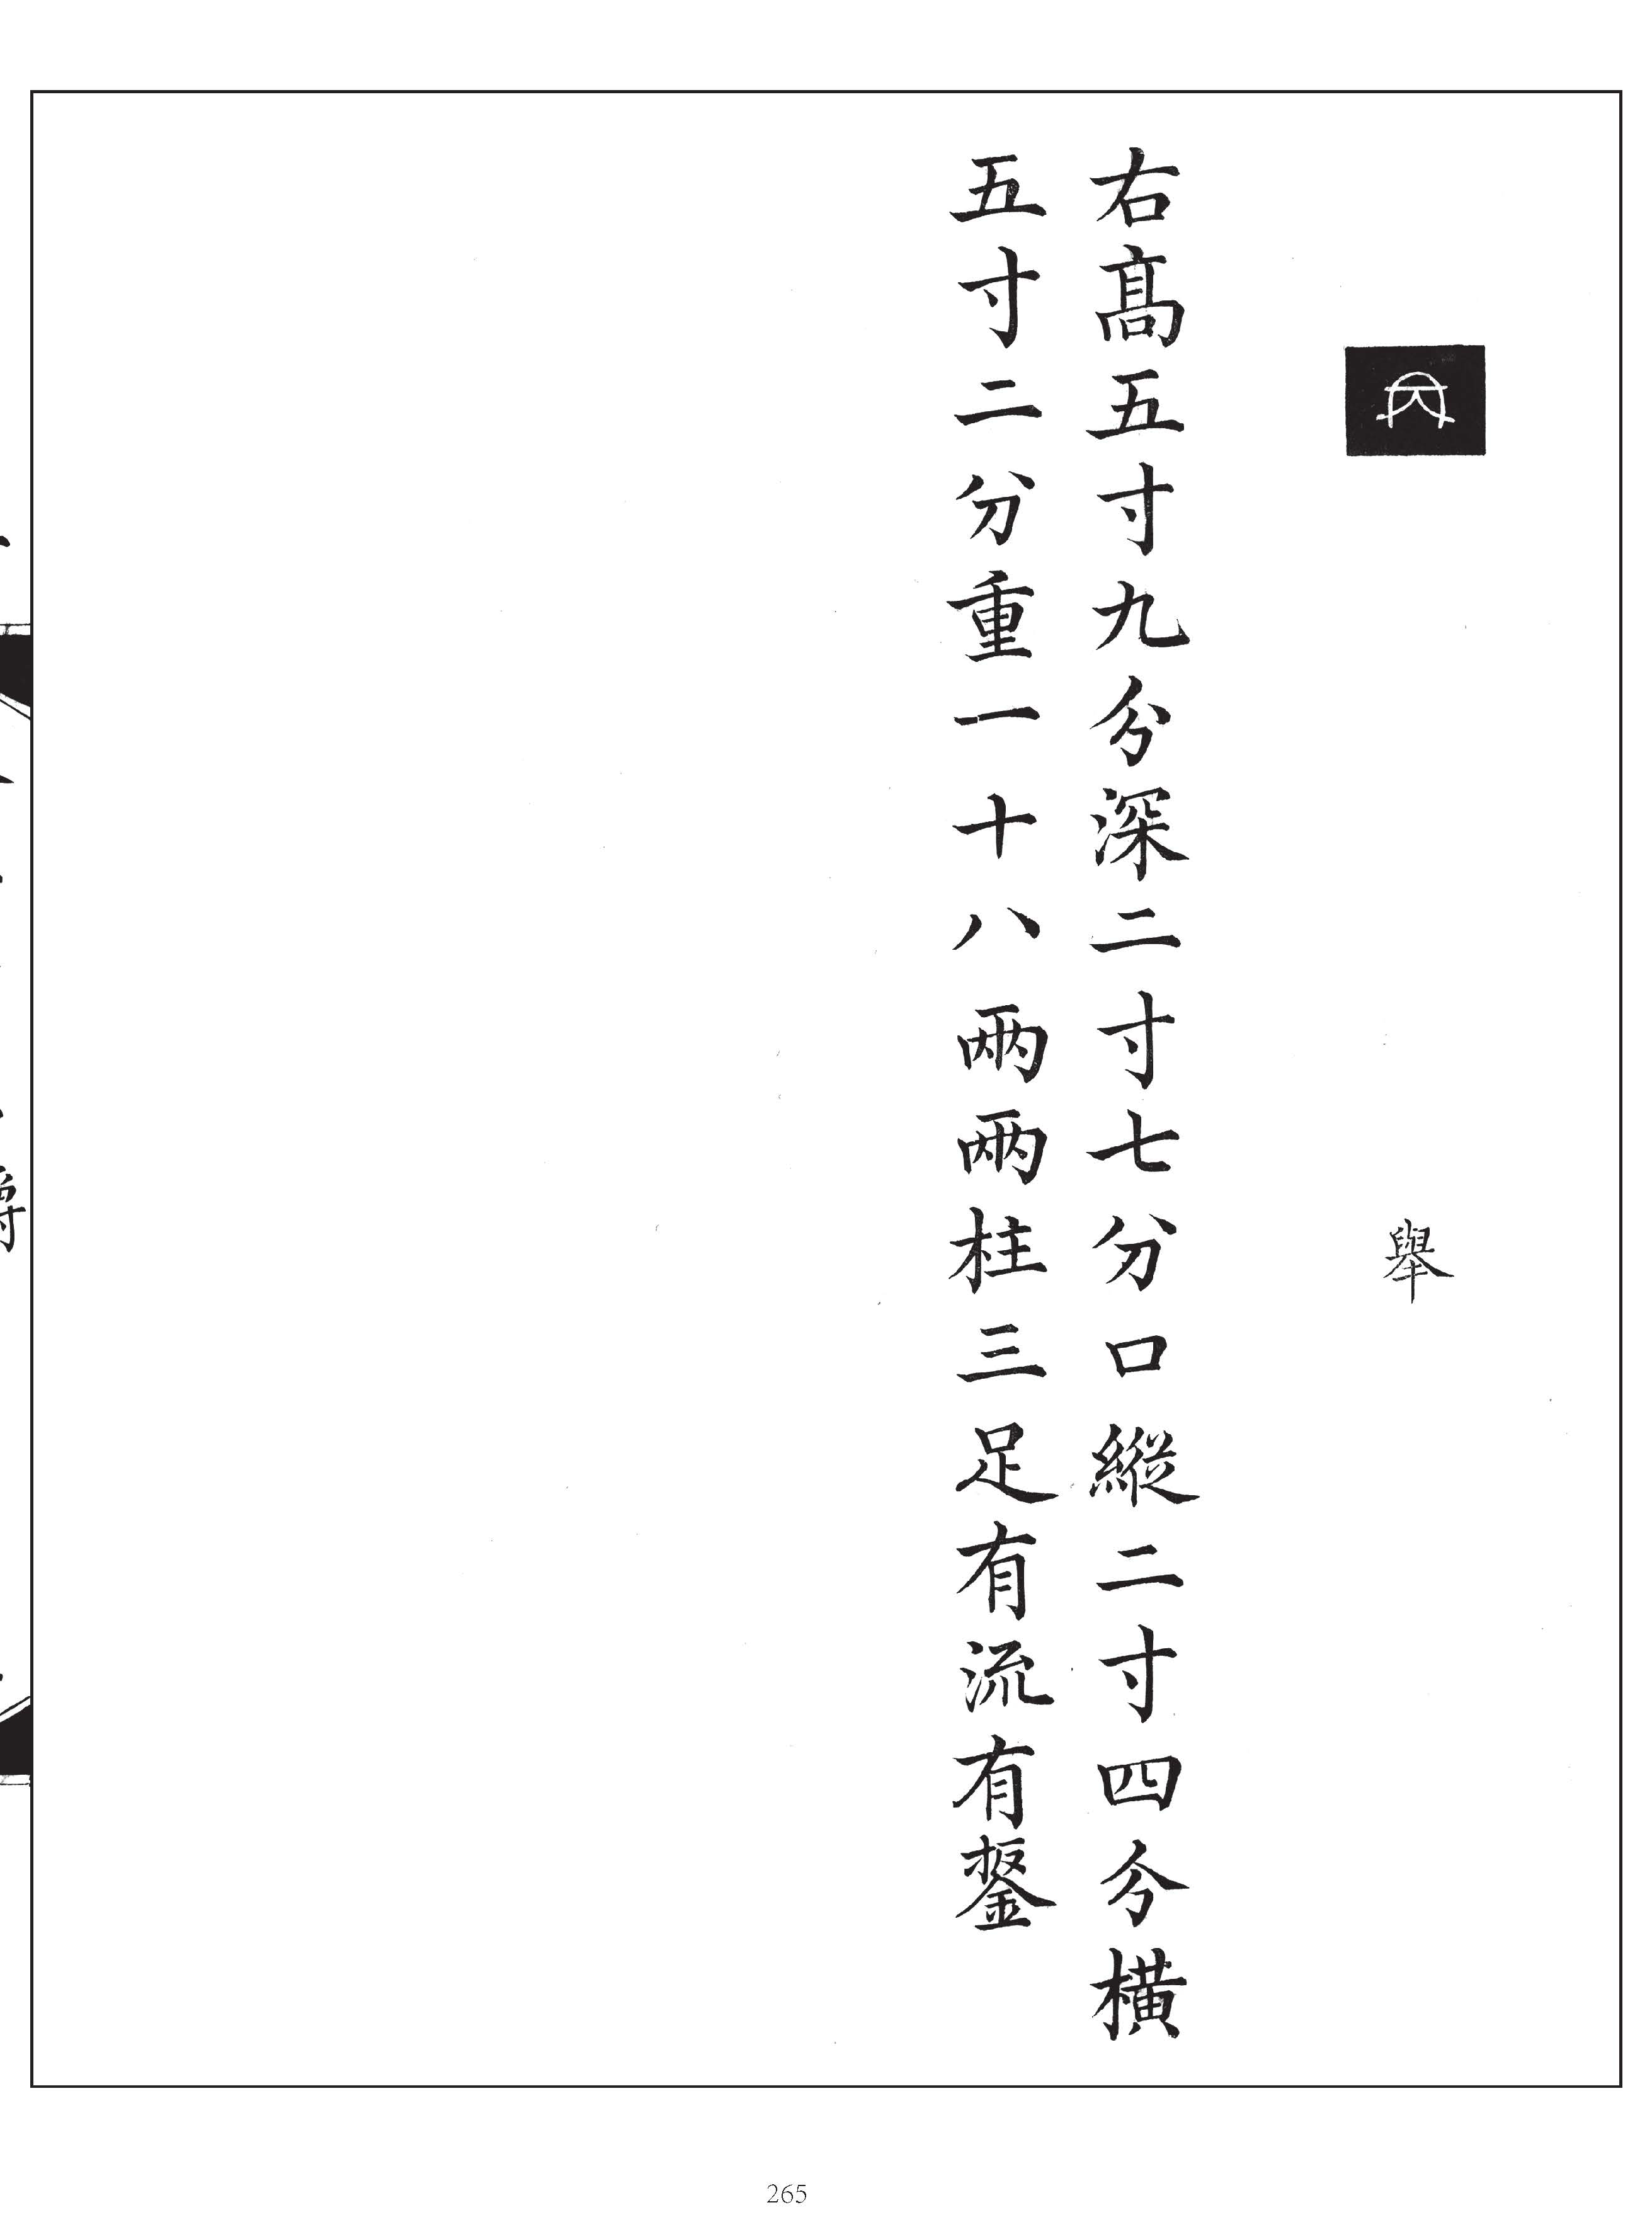 舉
右高五寸九分深二寸七分口縱二寸四分橫
五寸二分重一十八兩兩柱三足有流有鋬
265